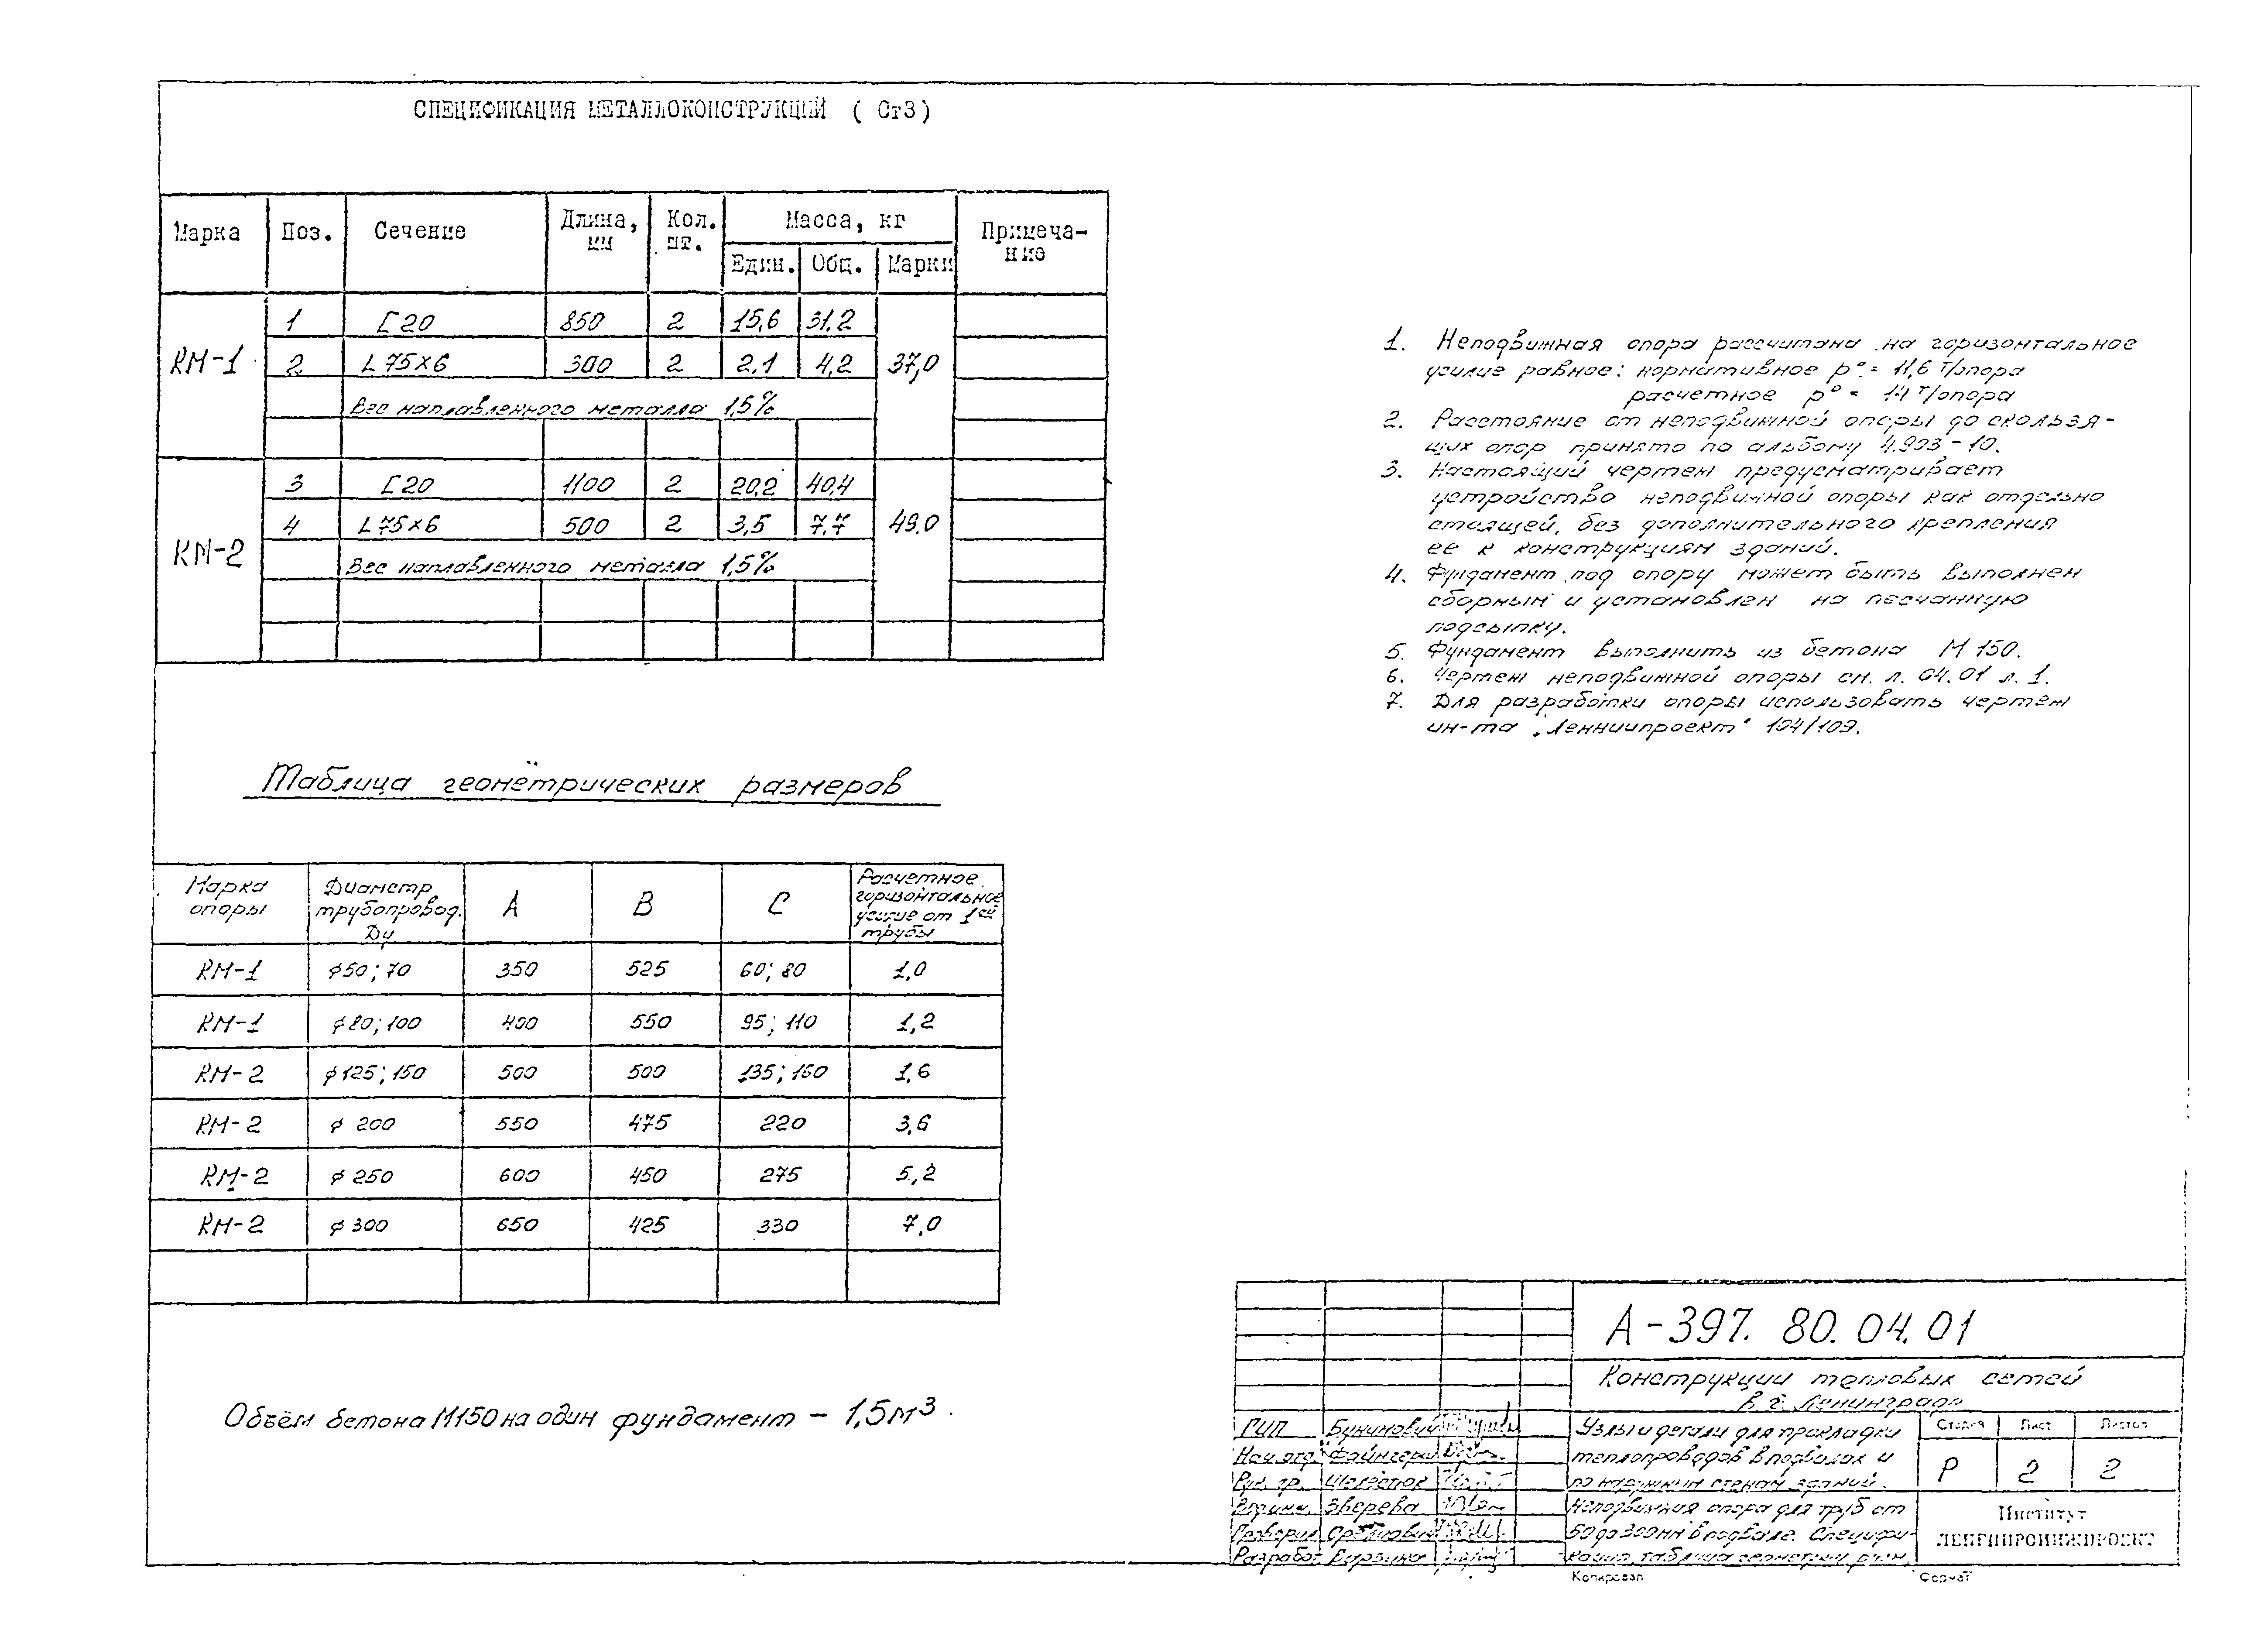 СПЕЦИФИКАЦИЯ МЕТАЛЛОКОНСТРУКЦИЙ ( Ст3 )
Марка Поз. Сечение Длина, мм Кол. шт. Масса, кг Примеча-ние
Един. Общ. Марки
КМ-1 1 [ 20 850 2 15,6 31,2 37,0
2 L 75×6 300 2 2,1 4,2
Вес наплавленного металла 1,5%
КМ-2 3 [ 20 1100 2 20,2 40,4 49.0
4 L 75×6 500 2 3,5 7,7
Вес наплавленного металла 1,5%
Таблица геометрических размеров
Марка опоры Диаметр трубопровод. Ду А В С Расчетное горизонтальное усилие от 1ой трубы
КМ-1 ф50; 70 350 525 60; 80 1,0
КМ-1 ф80; 100 400 550 95; 110 1,2
КМ-2 ф125; 150 500 500 135; 160 1,6
КМ-2 ф 200 550 475 220 3,6
КМ-2 ф 250 600 450 275 5,2
КМ-2 ф 300 650 425 330 7,0
Объём бетона М150 на один фундамент – 1,5м³.
1. Неподвижная опора рассчитана на горизонтальное
усилие равное: нормативное рº = 11,6 т/опора
расчетное рº = 14 т/опора
2. Расстояние от неподвижной опоры до скользя-
щих опор принято по альбому 4.903-10.
3. Настоящий чертеж предусматривает
устройство неподвижной опоры как отдельно
стоящей, без дополнительного крепления
ее к конструкциям зданий.
4. Фундамент под опору может быть выполнен
сборным и установлен на песчанную
подсыпку.
5. Фундамент выполнить из бетона М 150.
6. Чертеж неподвижной опоры см. л. 04.01 л. 1.
7. Для разработки опоры использовать чертеж
ин-та „Ленниипроект" 104/109.
А-397. 80. 04. 01
Конструкции тепловых сетей
в г. Ленинграде
ГИП Бунинович
Нач. отд.
Рук. гр.
Зверева
Разработ
Узлы и детали для прокладки
теплопроводов в подвалах и
по наружным стенам зданий.
Неподвижная опора для труб от
50 до 300мм в подвале. Специфи-
кация, таблица геометрич. разм.
Стадия Лист Листов
Р 2 2
Институт
ЛЕНГИПРОИНЖПРОЕКТ
Копировал Формат